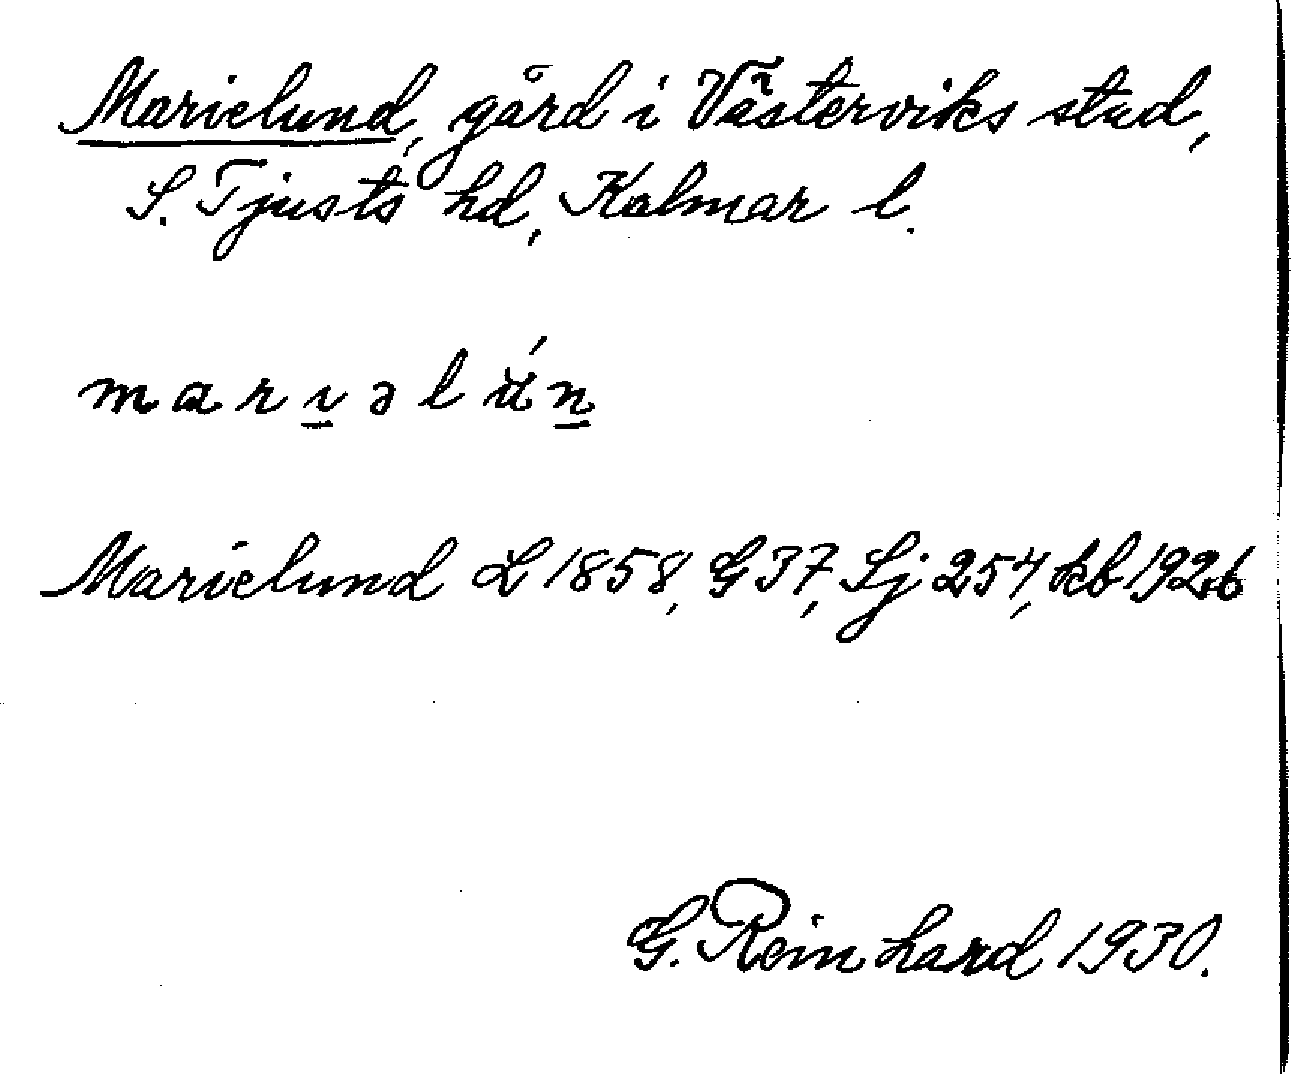 Marielund, gård i Västerviks stad,
S. Tjusts hd, Kalmar l.
m a r ı̲ ə l ú n̲
Marielund L 1858, G 37, Sj 254, kb 1926
G. Reinhard 1930.